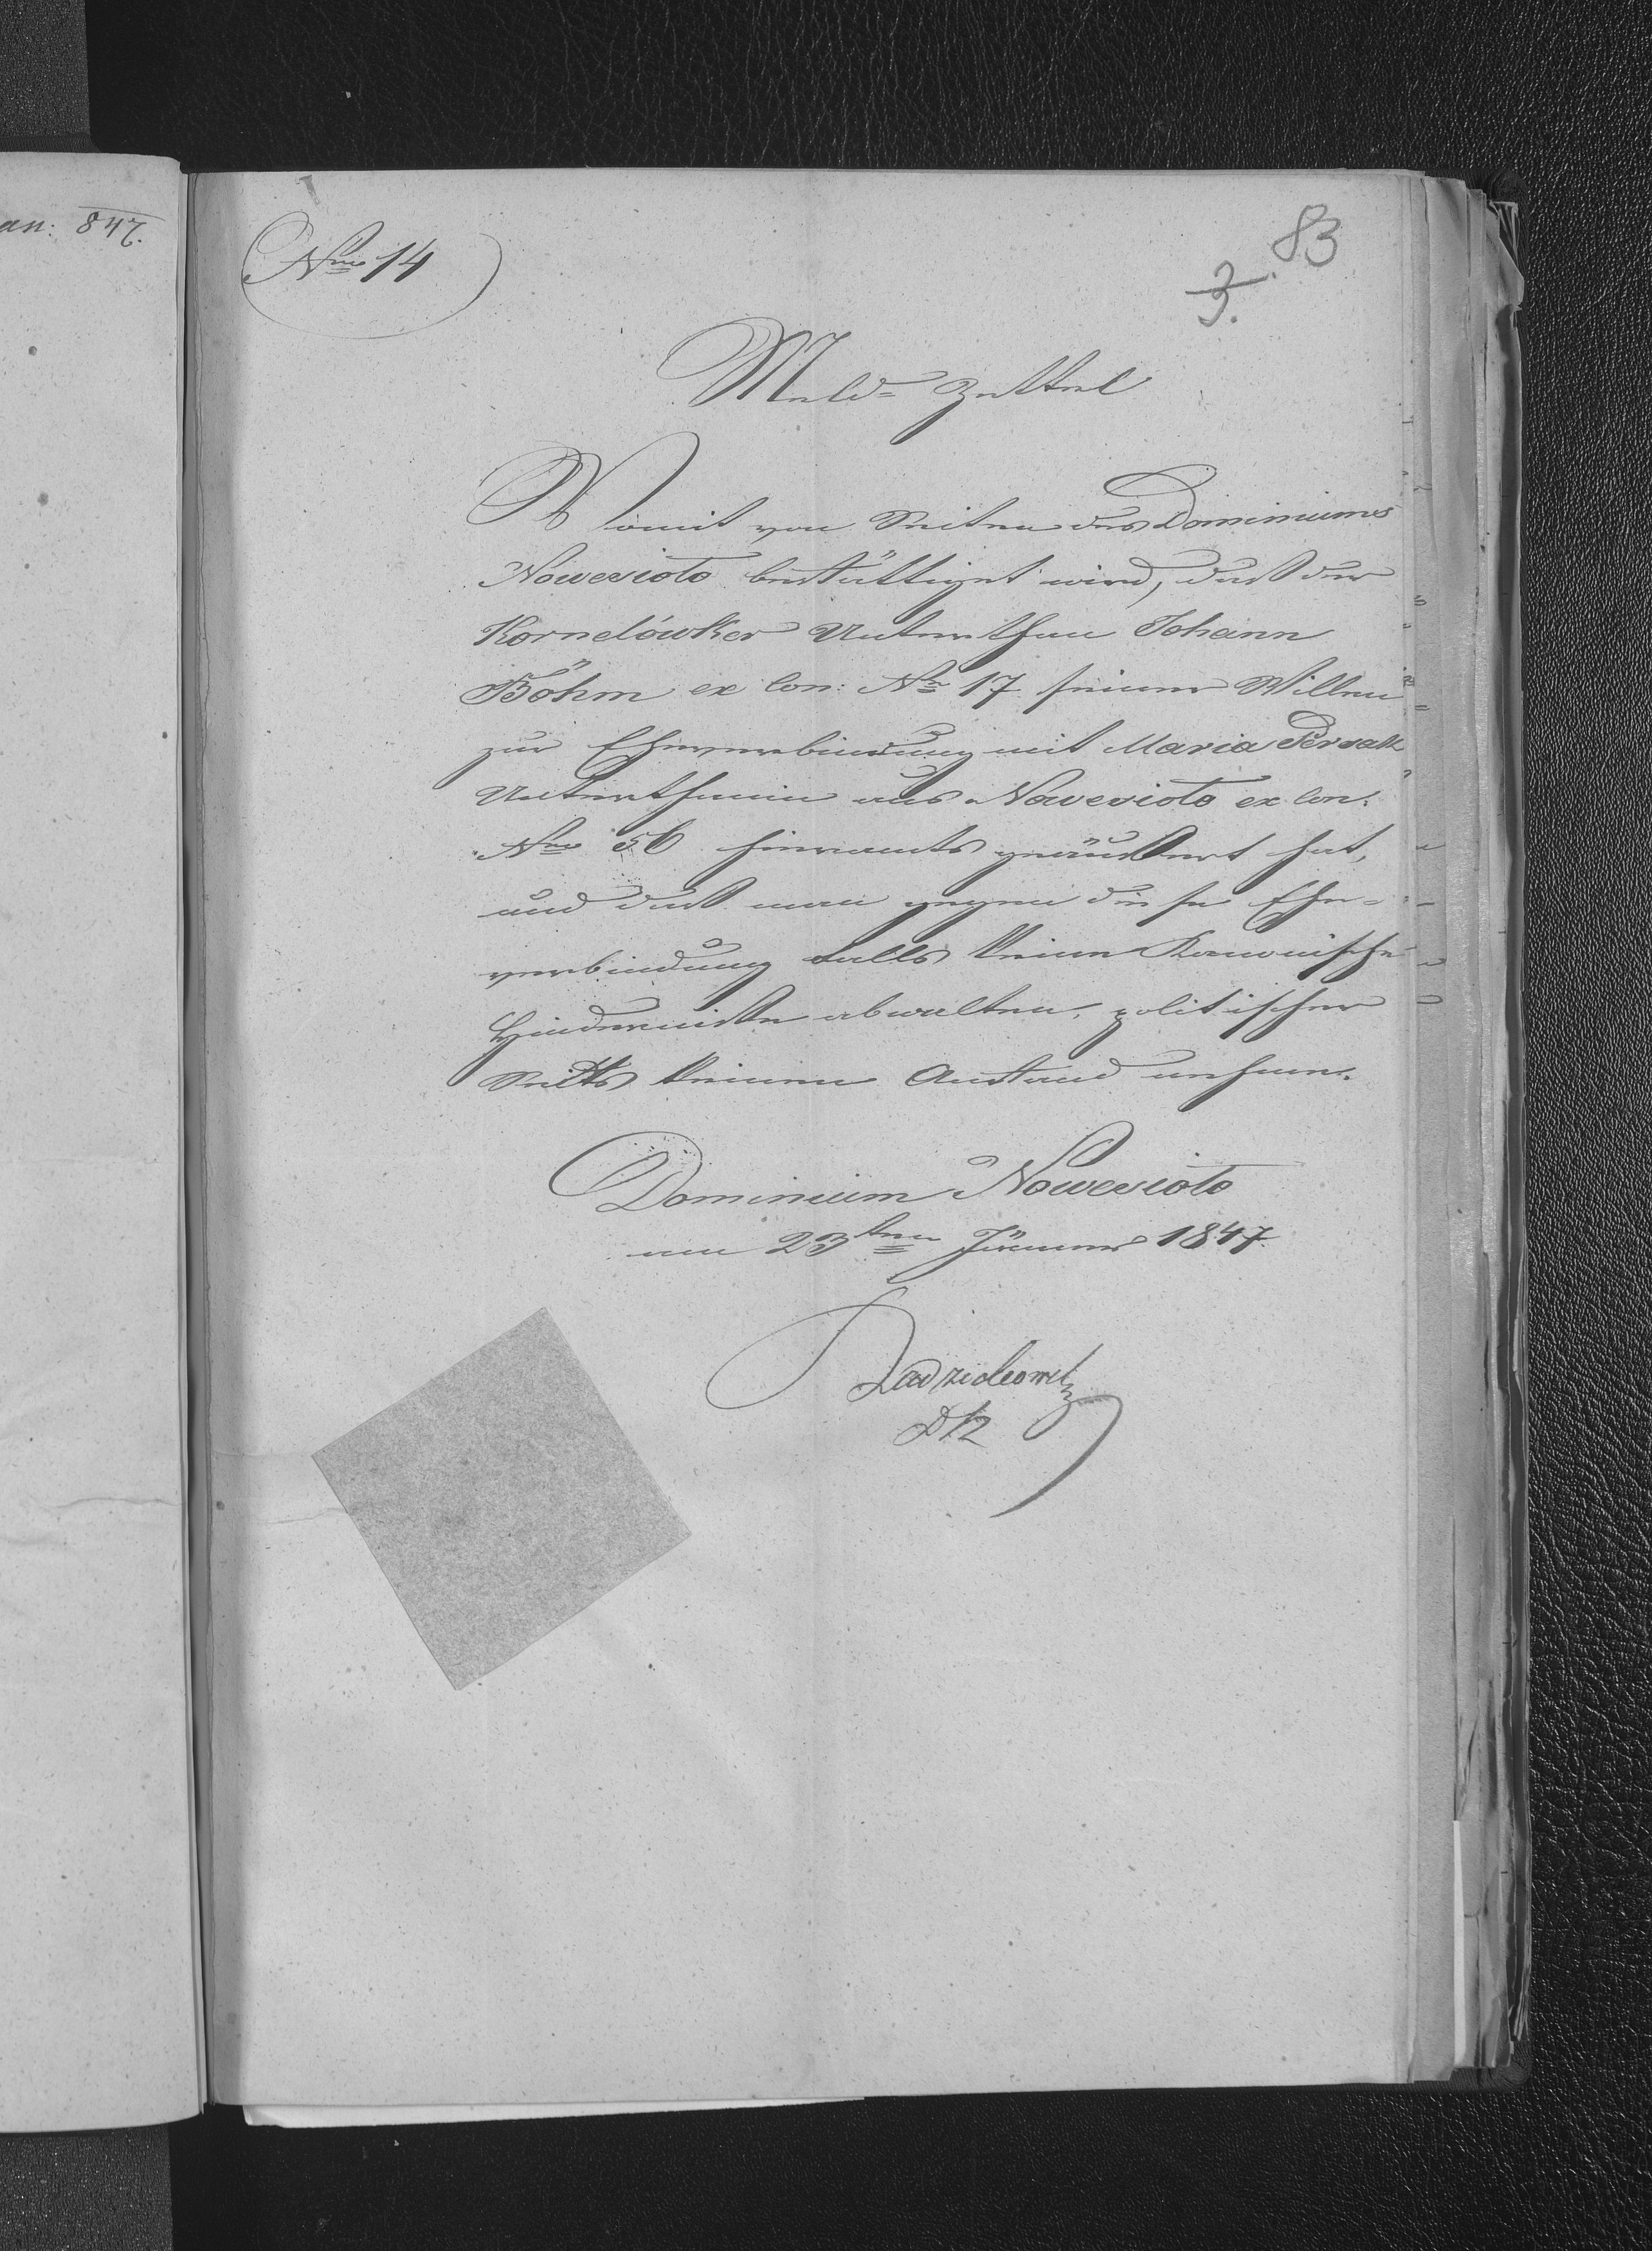 an: 847.
Nro 14
83
3.
Meld-Zettel
Womit von Seiten des Dominiums
Nowesioło bestättiget wird, daß der
Kornelówker Unterthan Johann
Böhm ex Con: Nr 17 seinen Willen
zur Eheverbindung mit Maria
Unterthanin aus Nowesioło ex Con.
Nro 56 hieramts geäußert hat,
und daß man gegen diese Ehe-
verbindung falls keine Kanonische
Hindernisse obwalten, politischer
Seits keinen Anstand nehme.
Dominium Nowesioło
am 23ten Jänner 1847.